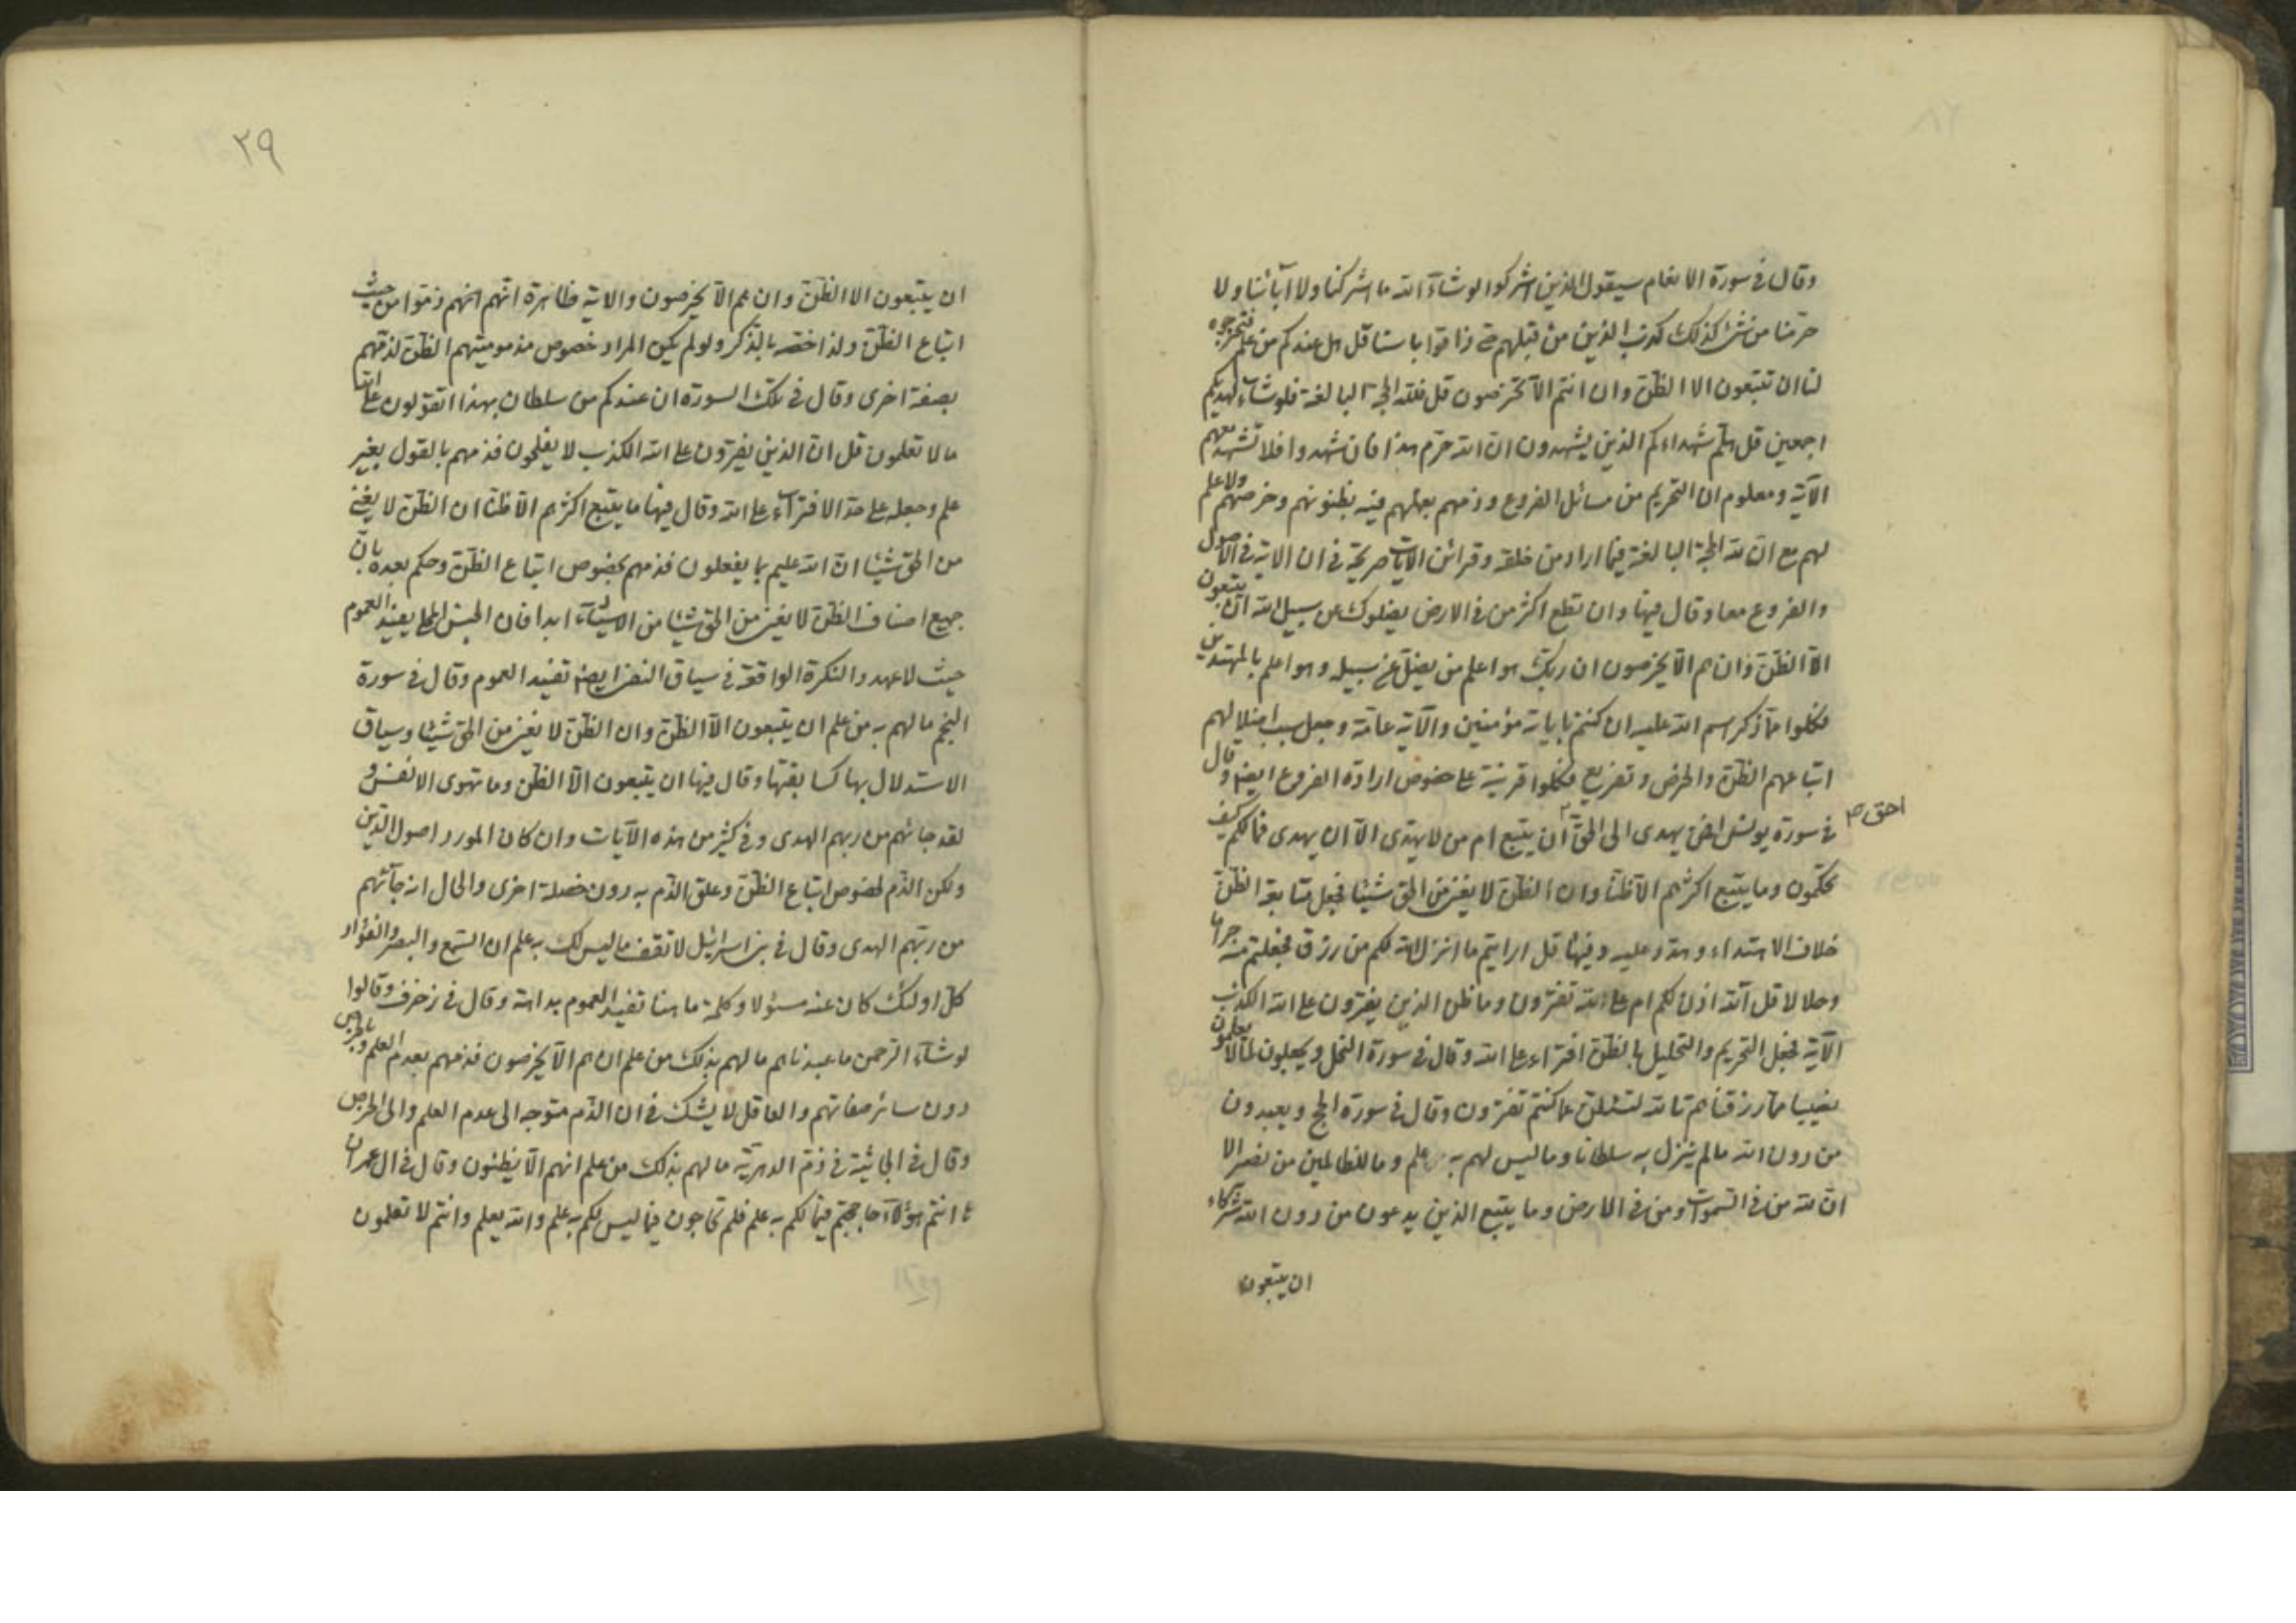 وقال في سورة الانعام سيقول الذين اشركوا لو شاء الله ما اشركنا ولا اباءنا ولا
حرمنا من شئ كذلك كذب الذين من قبلهم حتى ذاقوا باسنا قل هل عندكم من علم فتخرجوه
لنا ان تتبعون الا الظن وان انتم الا تخرصون قل فلله الحجة البالغة فلو شاء لهديكم
اجمعين قل هلم شهداءكم الذين يشهدون ان الله حرم هذا فان شهدوا فلا تشهد معهم
الآية ومعلوم ان التحريم من مسائل الفروع وذمهم بعملهم فيه بظنونهم وخرصهم ولا علم
لهم مع ان لله الحجة البالغة فيما اراد من خلقه وقرائن الآيات صريحة في ان الاية في الاصول
والفروع معا وقال فيها وان تطع اكثر من في الارض يضلوك عن سبيل الله ان يتبعون
الا الظن وان هم الا يخرصون ان ربك هو اعلم من يضل عن سبيله وهو اعلم بالمهتدين
فكلوا مما ذكر اسم الله عليه ان كنتم باياته مؤمنين والآية عامة وجعل سبب اضلالهم
اتباعهم الظن والخرص وتفريع فكلوا قرينة على خصوص ارادة الفروع ايضا وقال
في سورة يونس افمن يهدى الى الحق ان يتبع ام من لا يهتدى الا ان يهدى فما لكم كيف
احق
تحكمون وما يتبع اكثرهم الا ظنا وان الظن لا يغني من الحق شيئا فجعل متابعة الظن
خلاف الاهتداء وسدد عليه وفيها قل ارايتم ما انزل الله لكم من رزق فجعلتم منه حراما
وحلالا قل آلله اذن لكم ام على الله تفترون وما ظن الذين يفترون على الله الكذب
الآية فجعل التحريم والتحليل بالظن افتراء على الله وقال في سورة النحل ويجعلون لما لا يعلمون
نصيبا مما رزقناهم تالله لتسئلن عما كنتم تفترون وقال في سورة الحج ويعبدون
من دون الله ما لم ينزل به سلطانا وما ليس لهم به علم وما للظالمين من نصير الا
ان لله من في السموات ومن في الارض وما يتبع الذين يدعون من دون الله شركاء
ان يتبعون
٢٩
ان يتبعون الا الظن وان هم الا يخرصون والاية ظاهرة انهم انهم ذموا من حيث
اتباع الظن ولذا خصه بالذكر ولو لم يكن المراد خصوص مذموميتهم الظن لذمهم
بصفة اخرى وقال في تلك السورة ان عندكم من سلطان بهذا اتقولون على الله
ما لا تعلمون قل ان الذين يفترون على الله الكذب لا يفلحون فذمهم بالقول بغير
علم وجعله على حد الافتراء على الله وقال فيها ما يتبع اكثرهم الا ظنا ان الظن لا يغني
من الحق شيئا ان الله عليم بما يفعلون فذمهم بخصوص اتباع الظن وحكم بعده بان
جميع اصناف الظن لا يغني من الحق شيئا من الاشياء ابدا فان الجنس المحلى يفيد العموم
حيث لا عهد والنكرة الواقعة في سياق النفي ايضا تفيد العموم وقال في سورة
النجم ما لهم به من علم ان يتبعون الا الظن وان الظن لا يغني من الحق شيئا وسياق
الاستدلال بها كسابقتها وقال فيها ان يتبعون الا الظن وما تهوى الانفس و
لقد جائهم من ربهم الهدى وفي كثير من هذه الآيات وان كان المورد اصول الدين
ولكن الذم لخصوص اتباع الظن وعلق الذم به دون خصلة اخرى والحال انه جآئهم
من ربهم الهدى وقال في بني اسرائيل لا تقف ما ليس لك به علم ان السمع والبصر والفؤاد
كل اولئك كان عنه مسئولا وكلمة ما هنا تفيد العموم بداهة وقال في زخرف وقالوا
لو شاء الرحمن ما عبدناهم ما لهم بذلك من علم ان هم الا يخرصون فذمهم بعدم العلم وبالخرص
دون سائر صفاتهم والعاقل لا يشك في ان الذم متوجه الى عدم العلم والى الخرص
وقال في الجاثية في ذم الدهرية ما لهم بذلك من علم انهم الا يظنون وقال في ال عمران
ها انتم هؤلاء حاججتم فيما لكم به علم فلم تحاجون فيما ليس لكم به علم والله يعلم وانتم لا تعلمون